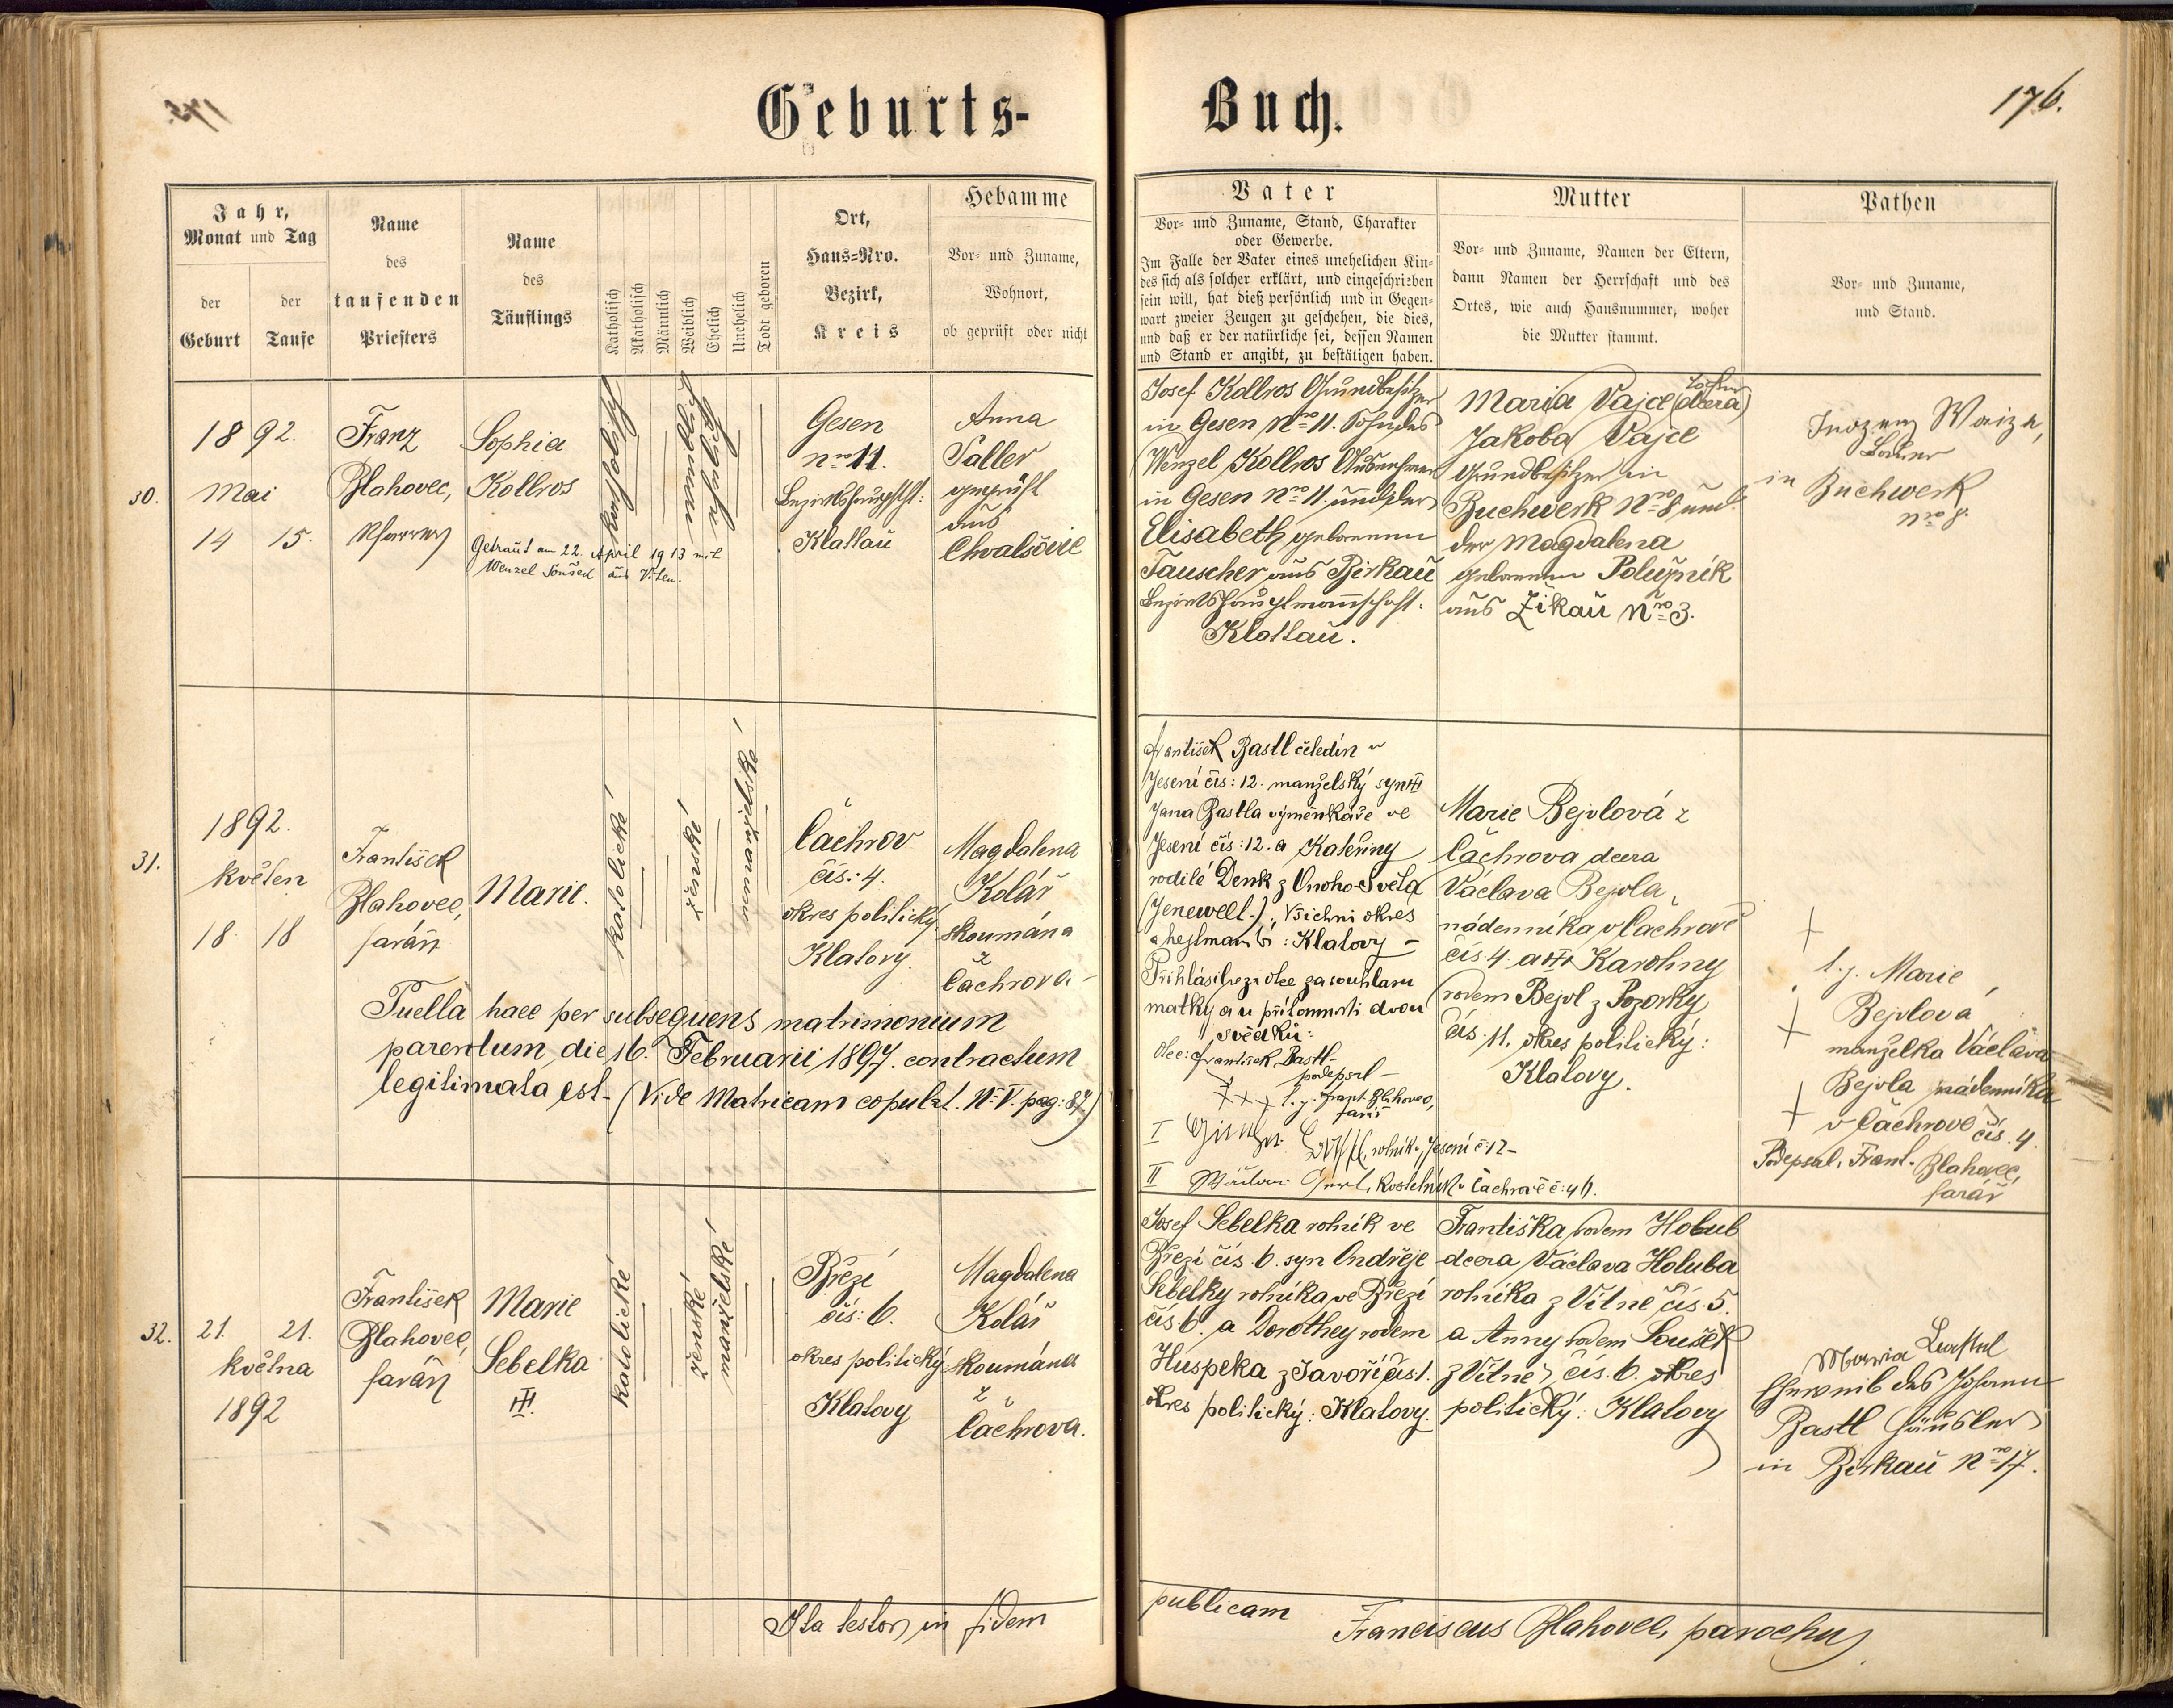 Geburts-
Buch.
176.
Jahr,
Monat und Tag
der
Geburt
der
Taufe
Name
des
taufenden
Priesters
Name
des
Täuflings
Katholisch
Akatholisch
Männlich
Weiblich
Ehelich
Unehelich
Todt geboren
Ort,
Haus-Nro.
Bezirk,
Kreis
Hebamme
Vor- und Zuname,
Wohnort,
ob geprüft oder nicht
Vater
Vor- und Zuname, Stand, Charakter
oder Gewerbe.
Im Falle der Vater eines unehelichen Kin-
des sich als solcher erklärt, und eingeschrieben
sein will, hat dieß persönlich und in Gegen-
wart zweier Zeugen zu geschehen, die dies,
und daß er der natürliche sei, dessen Namen
und Stand er angibt, zu bestätigen haben.
Mutter
Vor- und Zuname, Namen der Eltern,
dann Namen der Herrschaft und des
Ortes, wie auch Hausnummer, woher
die Mutter stammt.
Pathen
Vor- und Zuname,
und Stand.
30.
1892.
Mai
14 15.
Franz
Blahovec,
Pfarrer
Sophia
Kollros
Getraut am 22. April 1913 mit
Wenzel Soušek aus Viten.
katholisch
Gesen
nro 11.
Bezirkshauptsft:
Klattau
Anna
Saller
geprüft
aus
Chvalšovic
Josef Kollros Grundbesitzer
in Gesen Nro 11. Sohn des
Wenzel Kollros Ausnehmer
in Gesen Nro 11. und der
Elisabeth geborenen
Tauscher aus Birkau
Bezirkshauptmannschaft:
Klattau.
Maria Vajce (dcera) Tochter
Jakoba Vajce
Grundbesitzer in
Buchwerk Nro 8 und
der Magdalena
geborenen Polužnik
aus Žikau Nro 3.
Waiza,
Bauer
in Buchwerk
Nro 8.
31.
1892.
květen
18 18
František
Blahovec,
farář
Marie.
katolické
ženské
nemanželské
Čachrov
čís: 4.
okres politický
Klatovy.
Magdalena
Kolář
skoumána
z
Čachrova.
Puella haec per subsequens matrimonium
parentum die 16. Februarii 1897. contractum
legitimata est. (Vide Matricam copulat. No V. pag: 87)
František Bastl čeledín v
Jesení čís: 12. manželský syn
Jana Bastla výměnkáře ve
Jesení čís: 12. a Kateřiny
rodilé Denk z Onoho Světa
(Jenewelt.), všichni okres
a hejtmanství: Klatovy –
Přihlásil se za otce za souhlasu
matky a u přítomnosti dvou
svědků:
Otec: František Bastl –
podepsal –
+++ t. j. Frant. Blahovec,
farář
I rolník v Jesení č: 12 –
II Gerl, kostelník v Čachrově č: 46.
Marie Bejvlová z
Čachrova dcera
Václava Bejvla,
nádenníka v Čachrově
čís 4. a Karoliny
rodem Bejvl z Pozorky
čís. 11. okres politický:
Klatovy.
t. j. Marie
Bejvlová
manželka Václava
Bejvla nádenníka
v Čachrově čís. 4.
Podepsal, Frant. Blahovec,
farář
32.
21. 21.
května
1892
František
Blahovec,
farář
Marie
Sebelka
katolické
ženské
manželské
Březí
čís: 6.
okres politický
Klatovy
Magdalena
Kolář
skoumána
z
Čachrova.
Josef Sebelka rolník ve
Březí čís. 6. syn Ondřeje
Sebelky rolníka ve Březí
čís 6. a Dorothey rodem
Huspeka z Javoří čís. 1.
okres politický: Klatovy.
Františka rodem Holub
dcera Václava Holuba
rolníka z Vitně čís. 5.
a Anny rodem Soušek
z Vitně čís. 6. okres
politický: Klatovy
Maria
Eheweib des Johann
Bastl Häusler
in Birkau Nro 17.
Ita testor in fidem
publicam
Franciscus Blahovec, parochus